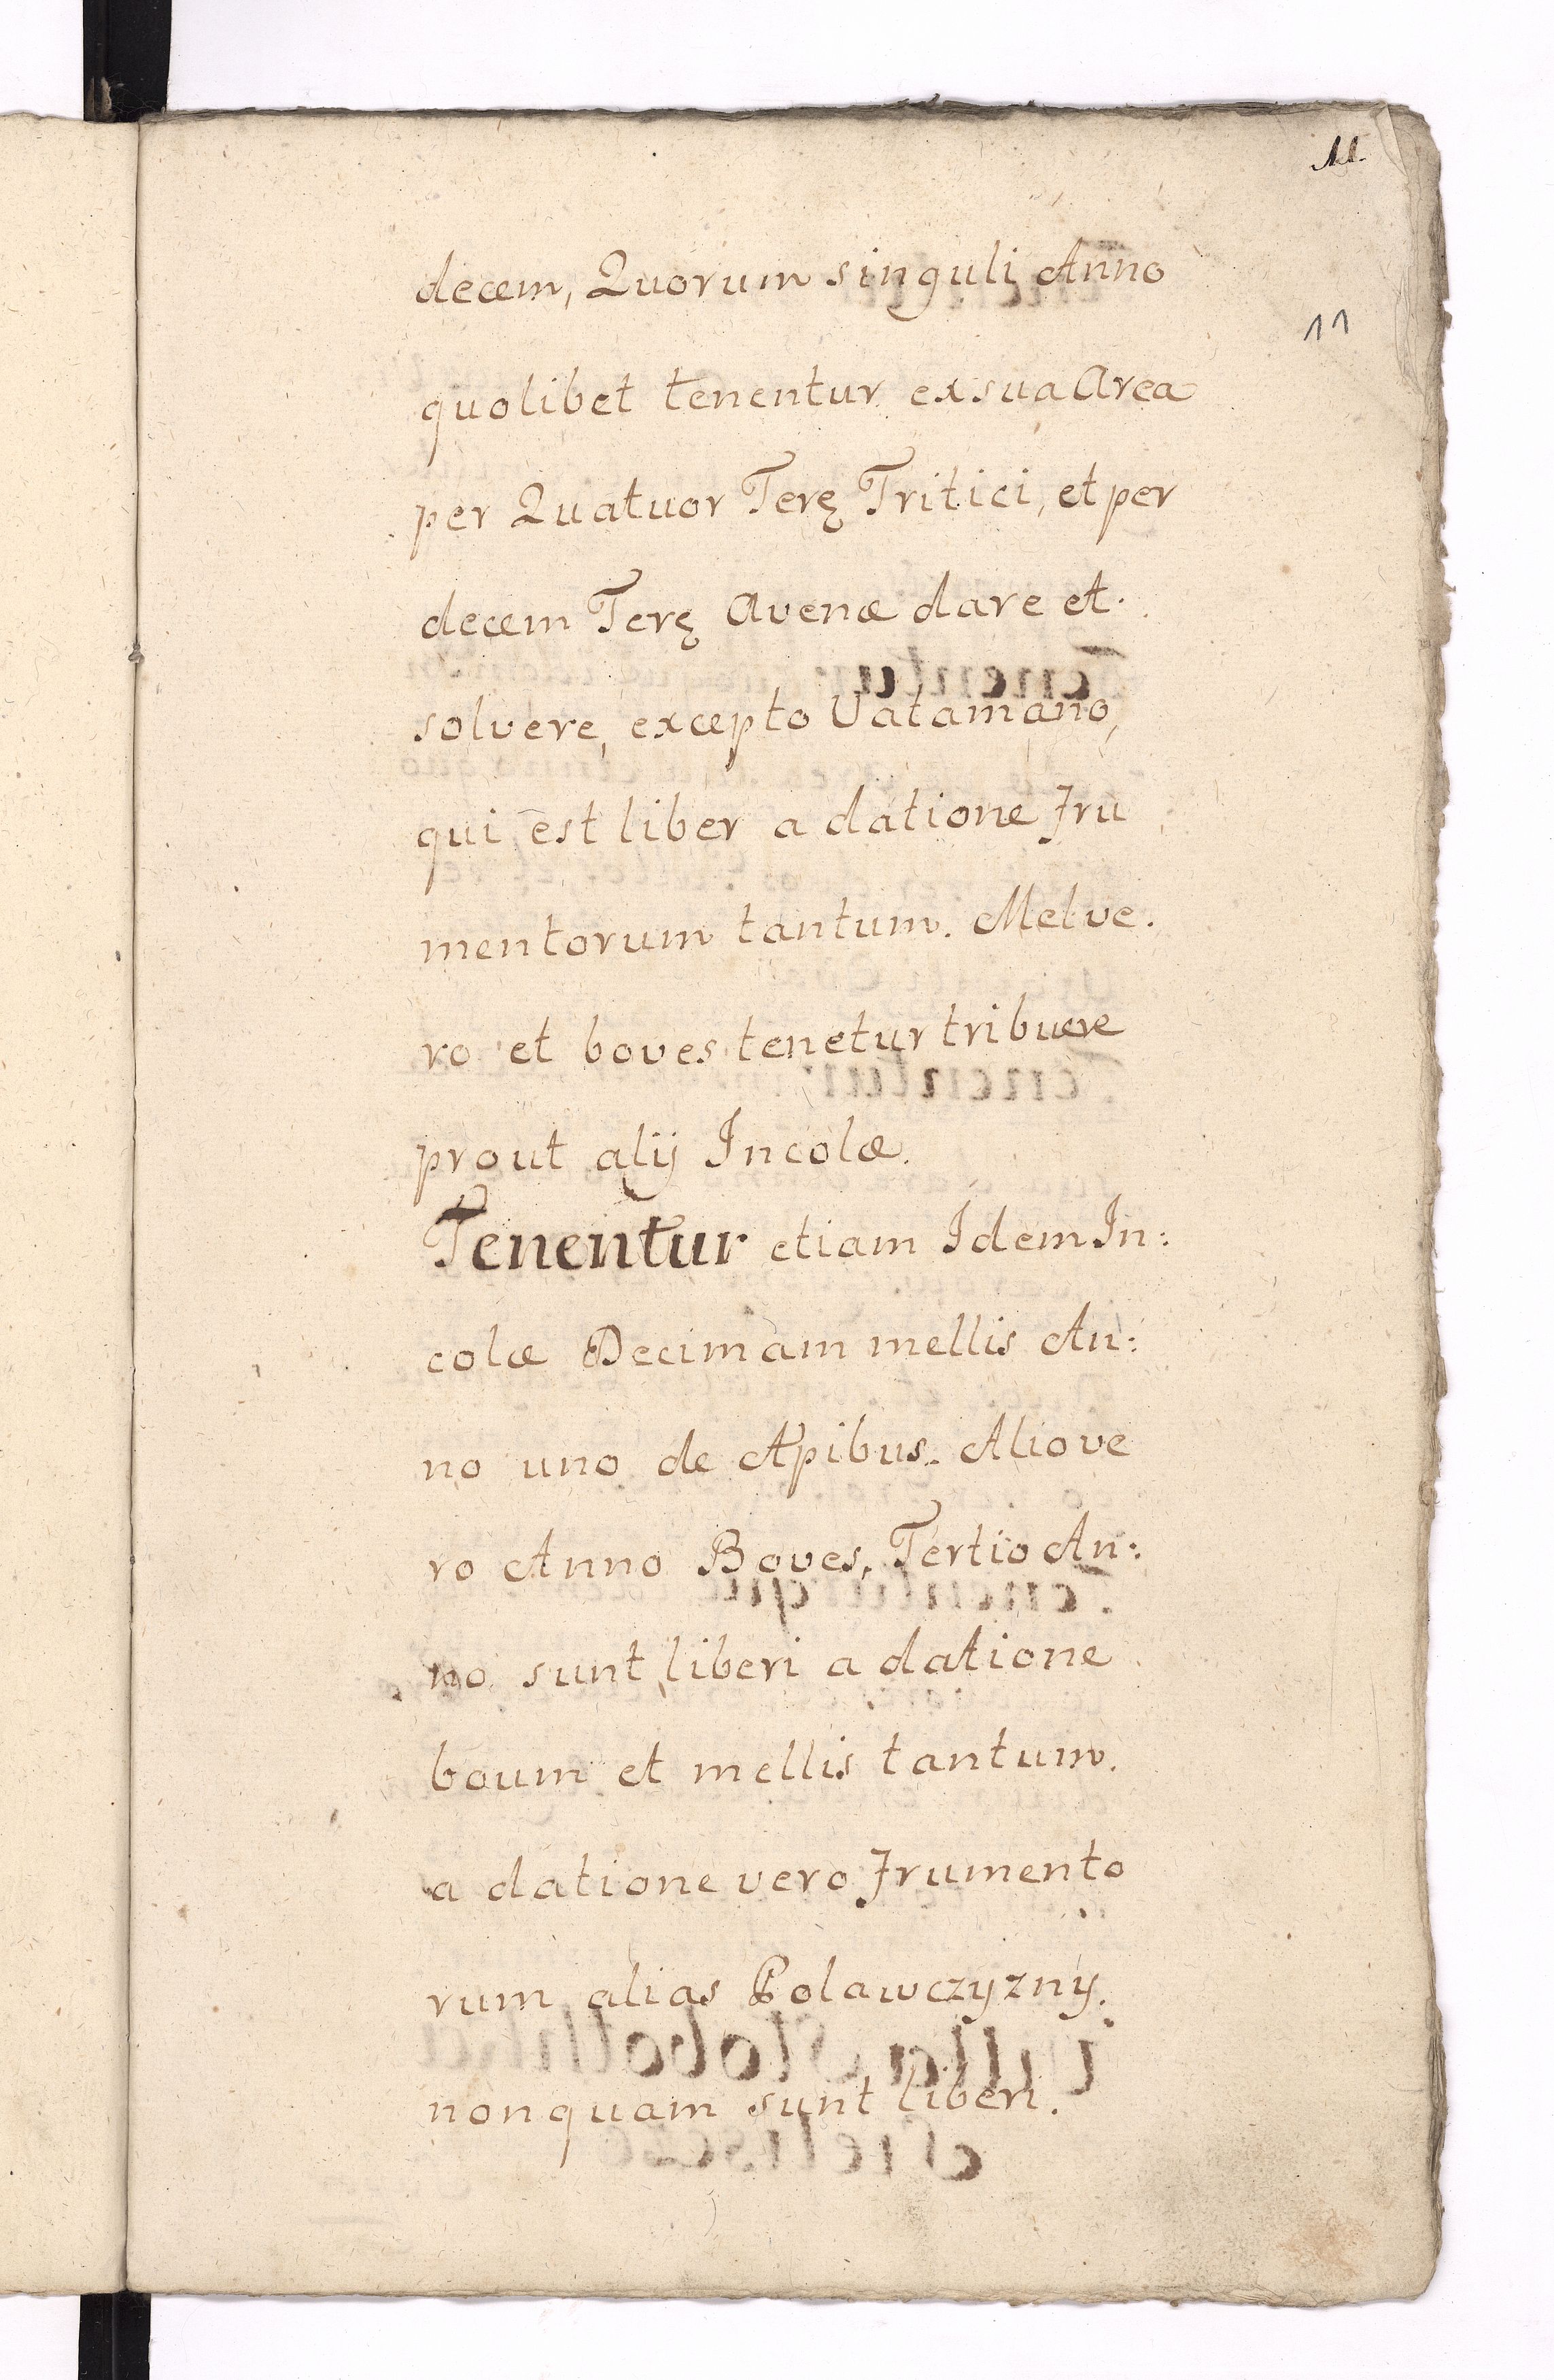 11.
decem, Quorum singuli Anno
11
quolibet tenentur ex sua Area
per Quatuor Terę Tritici, et per
decem Terę Avenæ dare et
solvere, excepto Vatamano,
qui est liber a datione Fru
mentorum tantum. Mel ve
ro et boves tenetur tribuere
prout alij Incolæ.
Tenentur etiam Idem In:
colæ Decimam mellis An:
no uno de Apibus. Alio ve
ro Anno Boves, Tertio An:
no sunt liberi a datione
boum et mellis tantum.
a datione vero Frumento
rum alias Polawczyzny.
nonquam sunt liberi.